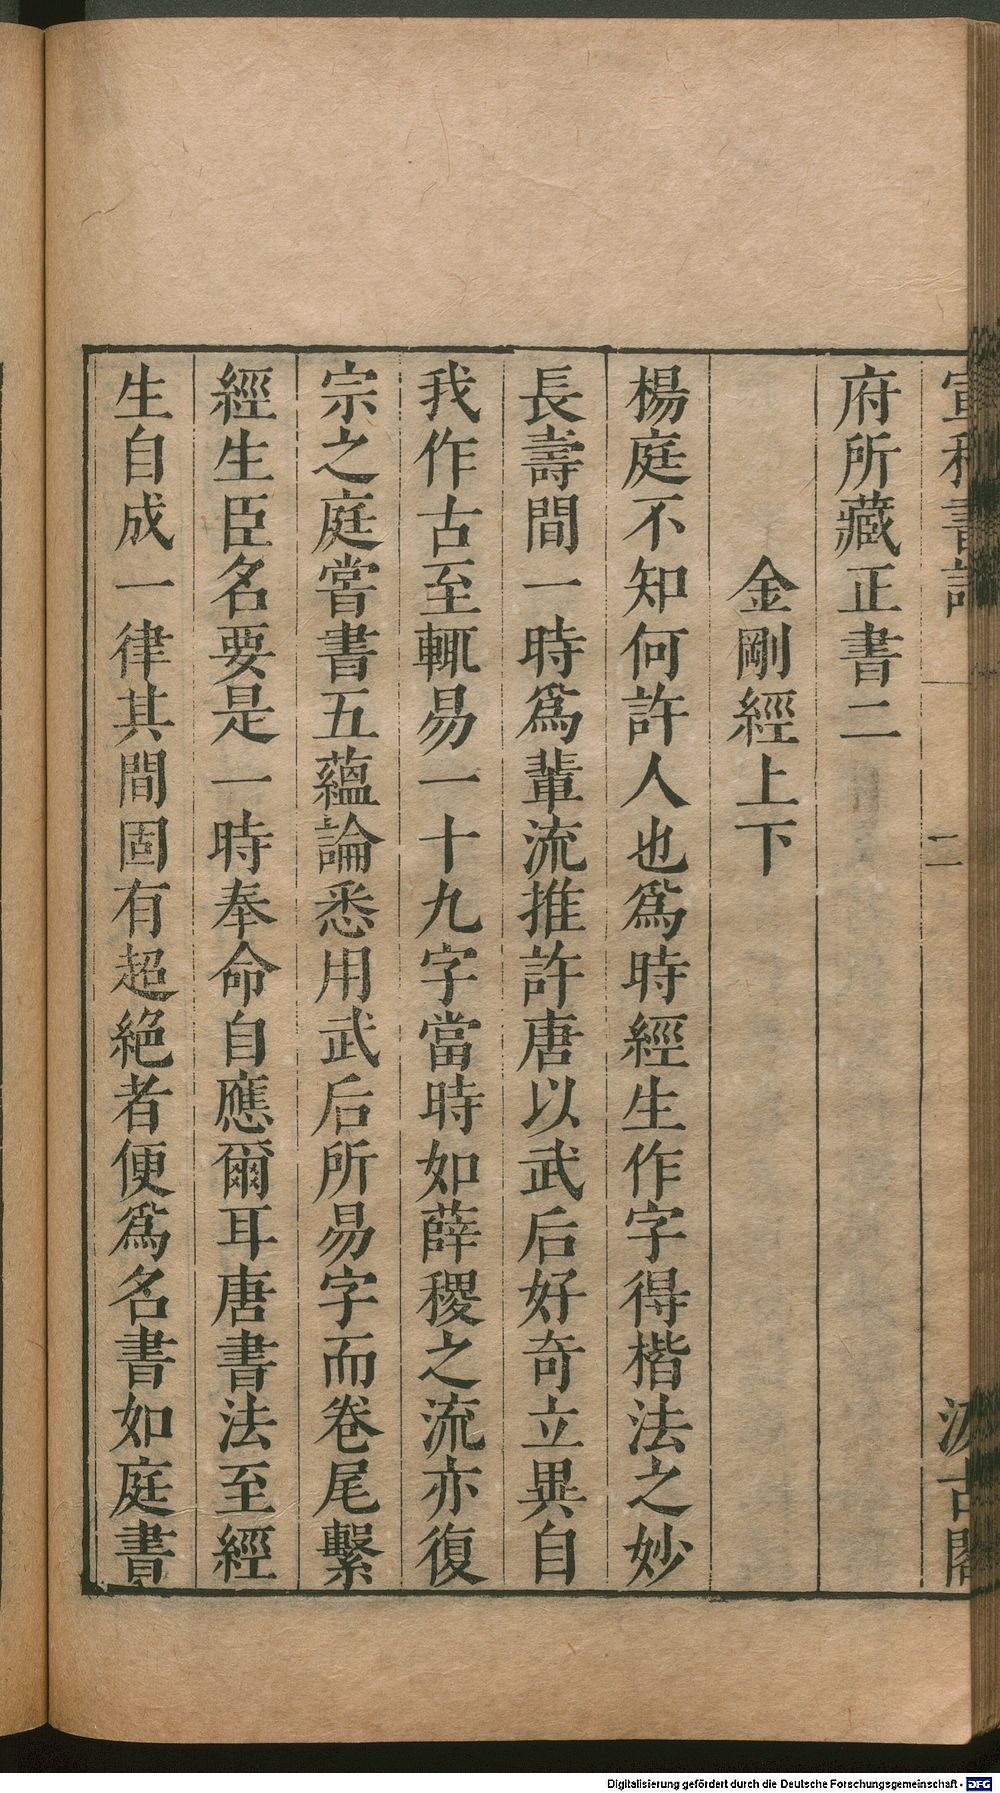 宣和書譜 二 汲古閣
府所藏正書二
金剛經上下
楊庭不知何許人也爲時經生作字得楷法之妙
長壽間一時爲輩流推許唐以武后好奇立異自
我作古至輒易一十九字當時如薛稷之流亦復
宗之庭嘗書五蘊論悉用武后所易字而卷尾繫
經生臣名要是一時奉命自應爾耳唐書法至經
生自成一律其間固有超絕者便爲名書如庭書
Digitalisierung gefördert durch die Deutsche Forschungsgemeinschaft - DFG